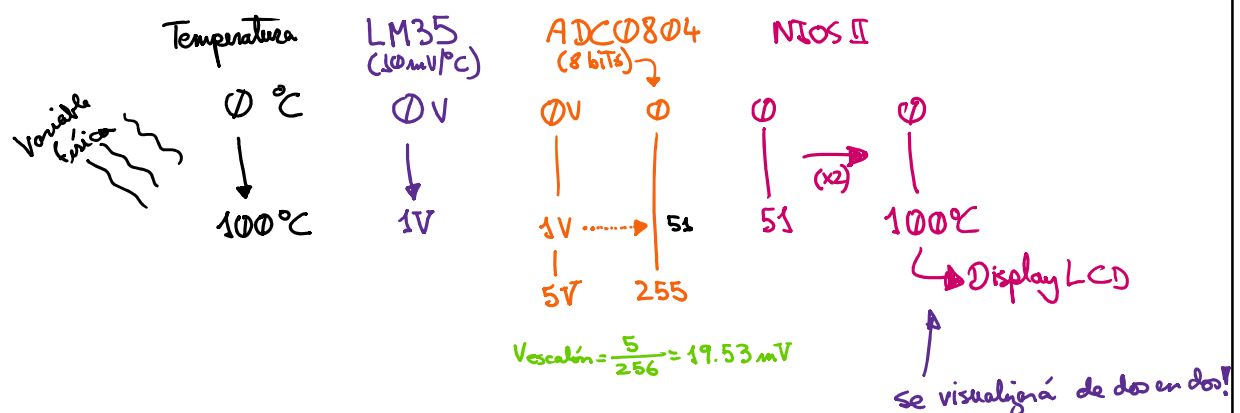 Temperatura
LM35
(10mV/°C)
ADC0804
(8 bits)
NIOS II
Variable
física
0 °C
0V
0V
0
0
0
(x2)
100°C
1V
1V
51
51
100°C
5V
255
Display LCD
Vescalón = 5/256 = 19.53 mV
se visualizará de dos en dos!